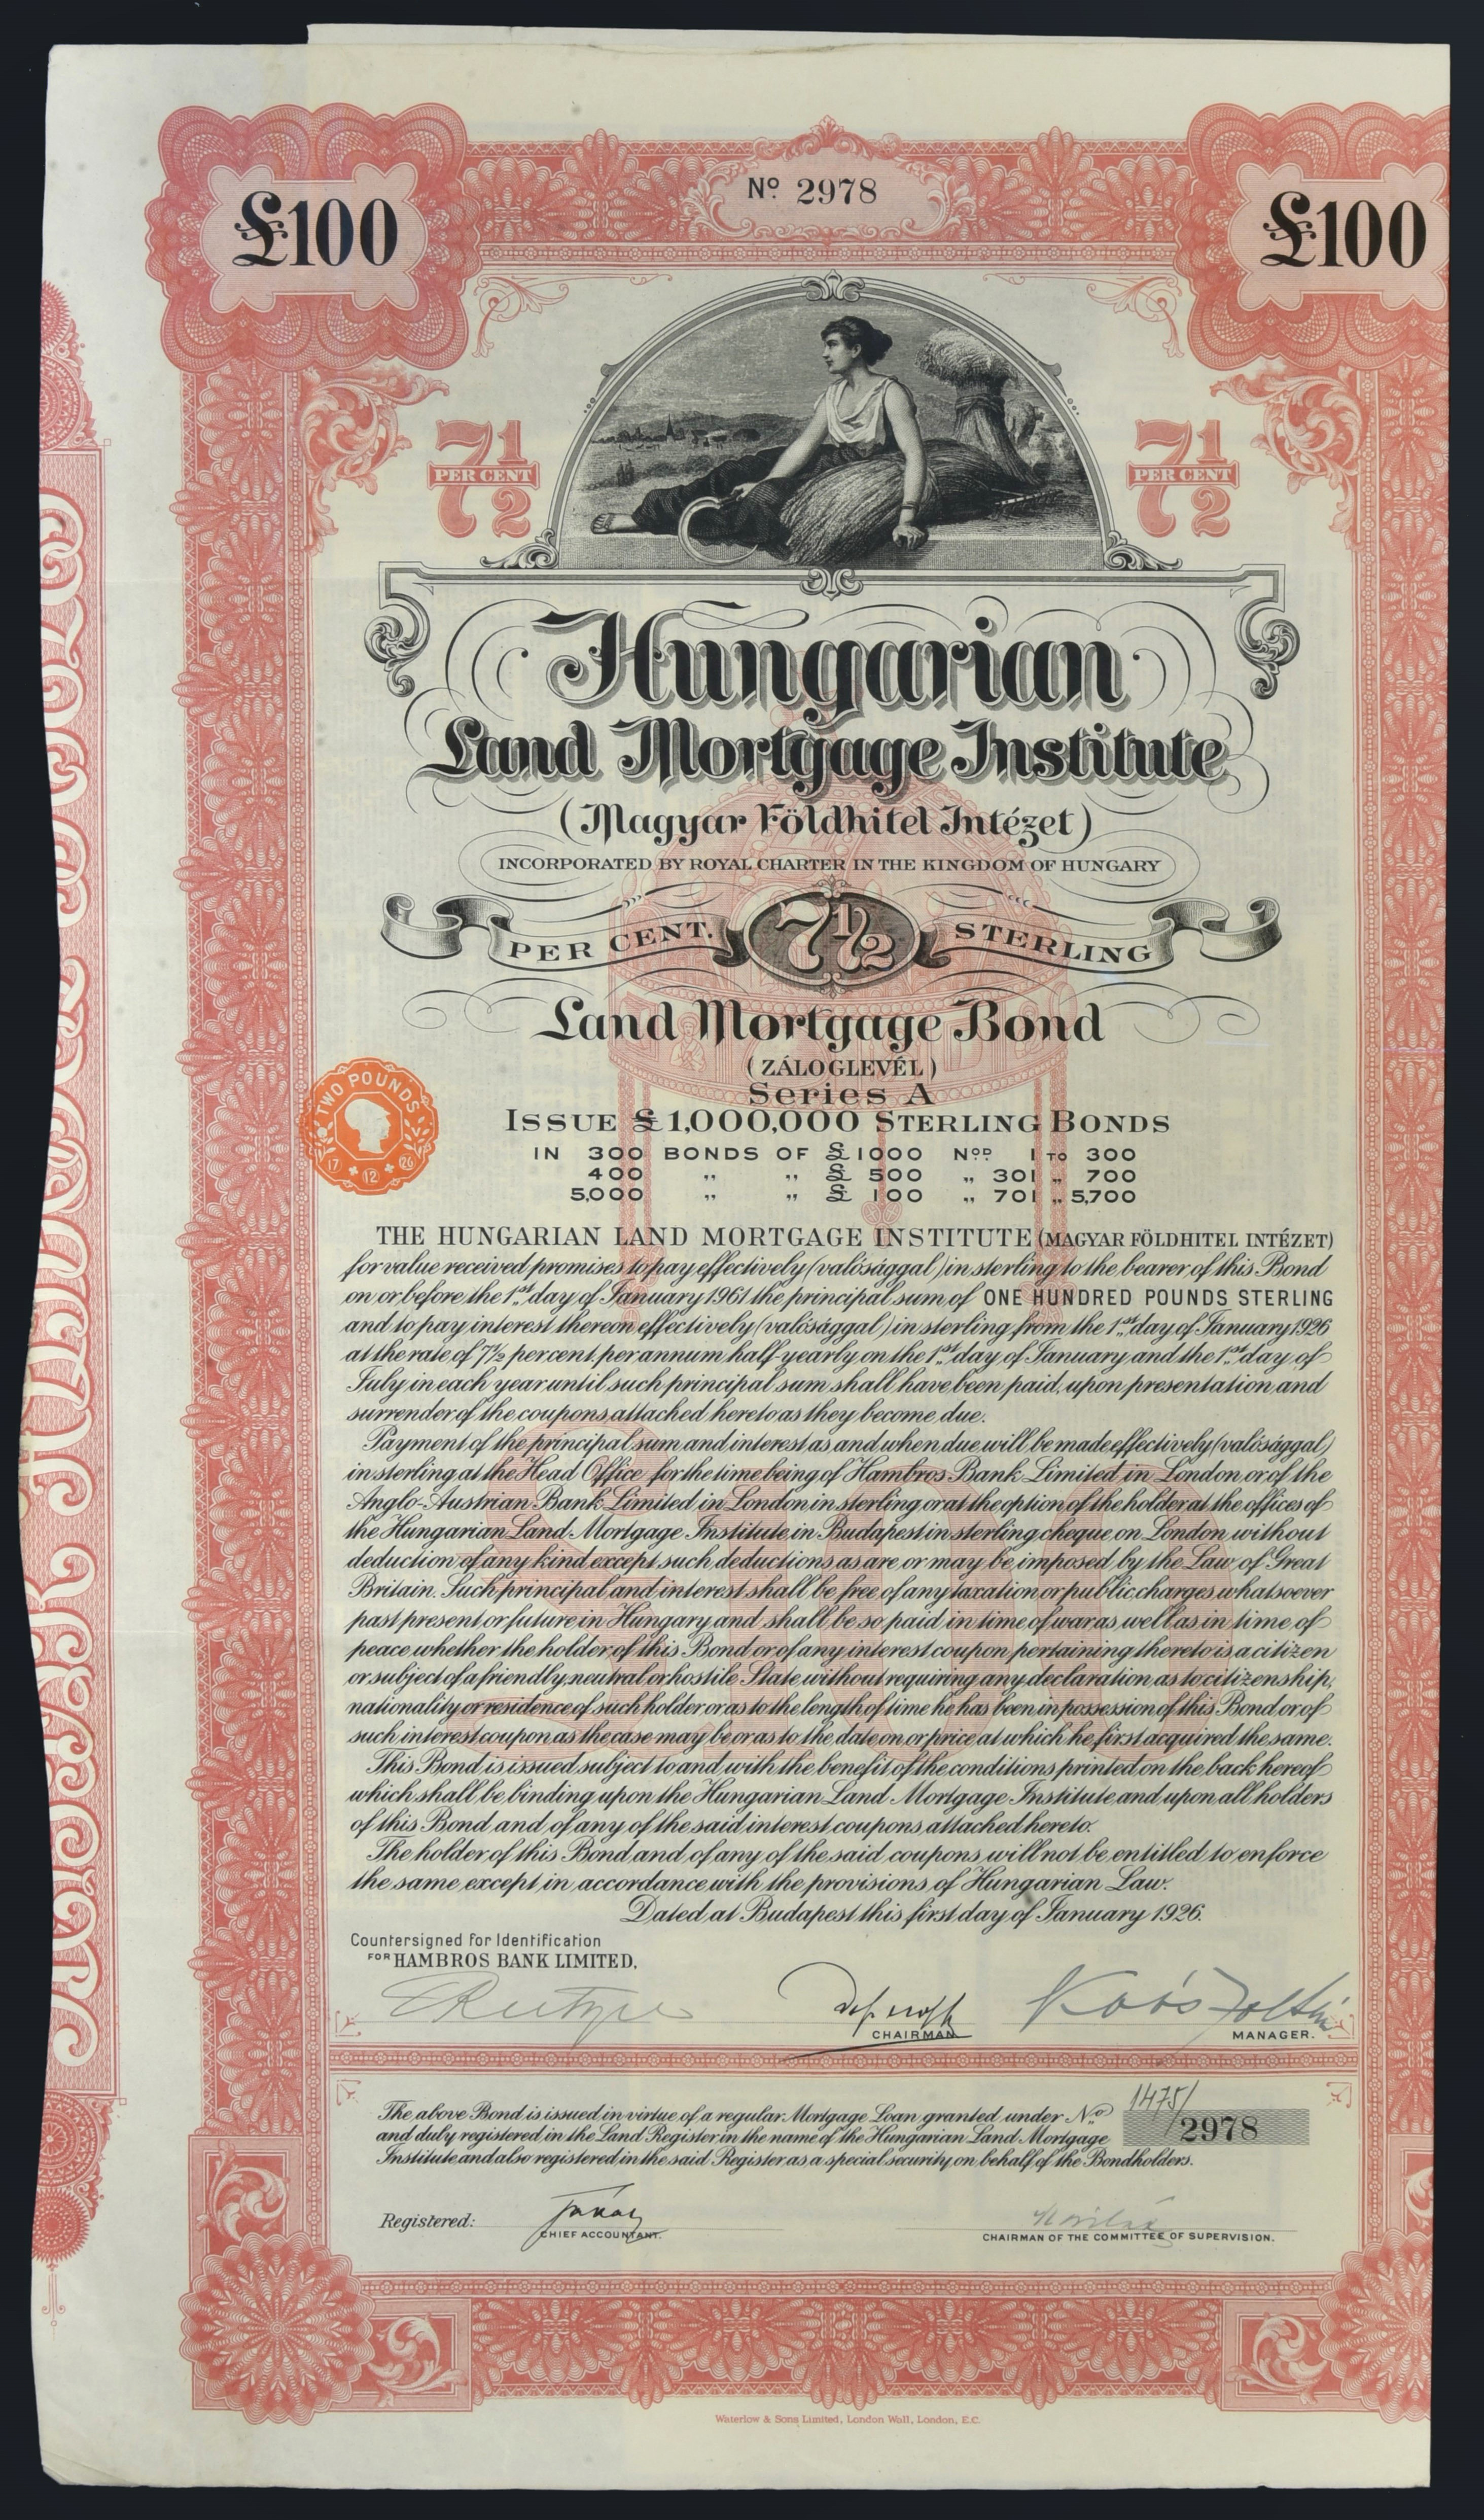 Nº 2978
£100
£100
7½ PER CENT
7½ PER CENT
Hungarian
Land Mortgage Institute
(Magyar Földhitel Intézet)
INCORPORATED BY ROYAL CHARTER IN THE KINGDOM OF HUNGARY
PER CENT. 7½ STERLING
Land Mortgage Bond
(ZÁLOGLEVÉL)
Series A
TWO POUNDS
17 12 26
ISSUE £1,000,000 STERLING BONDS
IN 300 BONDS OF £1000 Nos 1 TO 300
400 " " £ 500 " 301 " 700
5,000 " " £ 100 " 701 " 5,700
THE HUNGARIAN LAND MORTGAGE INSTITUTE (MAGYAR FÖLDHITEL INTÉZET)
for value received promises to pay effectively (valósággal) in sterling to the bearer of this Bond
on or before the 1st day of January 1961 the principal sum of ONE HUNDRED POUNDS STERLING
and to pay interest thereon effectively (valósággal) in sterling from the 1st day of January 1926
at the rate of 7½ per cent per annum half-yearly on the 1st day of January and the 1st day of
July in each year until such principal sum shall have been paid, upon presentation and
surrender of the coupons attached hereto as they become due.
Payment of the principal sum and interest as and when due will be made effectively (valósággal)
in sterling at the Head Office for the time being of Hambros Bank Limited in London or of the
Anglo-Austrian Bank Limited in London in sterling or at the option of the holder at the offices of
the Hungarian Land Mortgage Institute in Budapest in sterling cheque on London without
deduction of any kind except such deductions as are or may be imposed by the Law of Great
Britain. Such principal and interest shall be free of any taxation or public charges whatsoever
past present or future in Hungary and shall be so paid in time of war as well as in time of
peace whether the holder of this Bond or of any interest coupon pertaining thereto is a citizen
or subject of a friendly, neutral or hostile State without requiring any declaration as to citizenship,
nationality or residence of such holder or as to the length of time he has been in possession of this Bond or of
such interest coupon as the case may be or as to the date on or price at which he first acquired the same.
This Bond is issued subject to and with the benefit of the conditions printed on the back hereof
which shall be binding upon the Hungarian Land Mortgage Institute and upon all holders
of this Bond and of any of the said interest coupons attached hereto.
The holder of this Bond and of any of the said coupons will not be entitled to enforce
the same except in accordance with the provisions of Hungarian Law.
Dated at Budapest this first day of January 1926.
Countersigned for Identification
FOR HAMBROS BANK LIMITED.
Koós Zoltán
CHAIRMAN
MANAGER.
The above Bond is issued in virtue of a regular Mortgage Loan granted under No 1475/2978
and duly registered in the Land Register in the name of the Hungarian Land Mortgage
Institute and also registered in the said Register as a special security on behalf of the Bondholders.
Registered:
CHIEF ACCOUNTANT.
CHAIRMAN OF THE COMMITTEE OF SUPERVISION.
Waterlow & Sons Limited, London Wall, London, E.C.